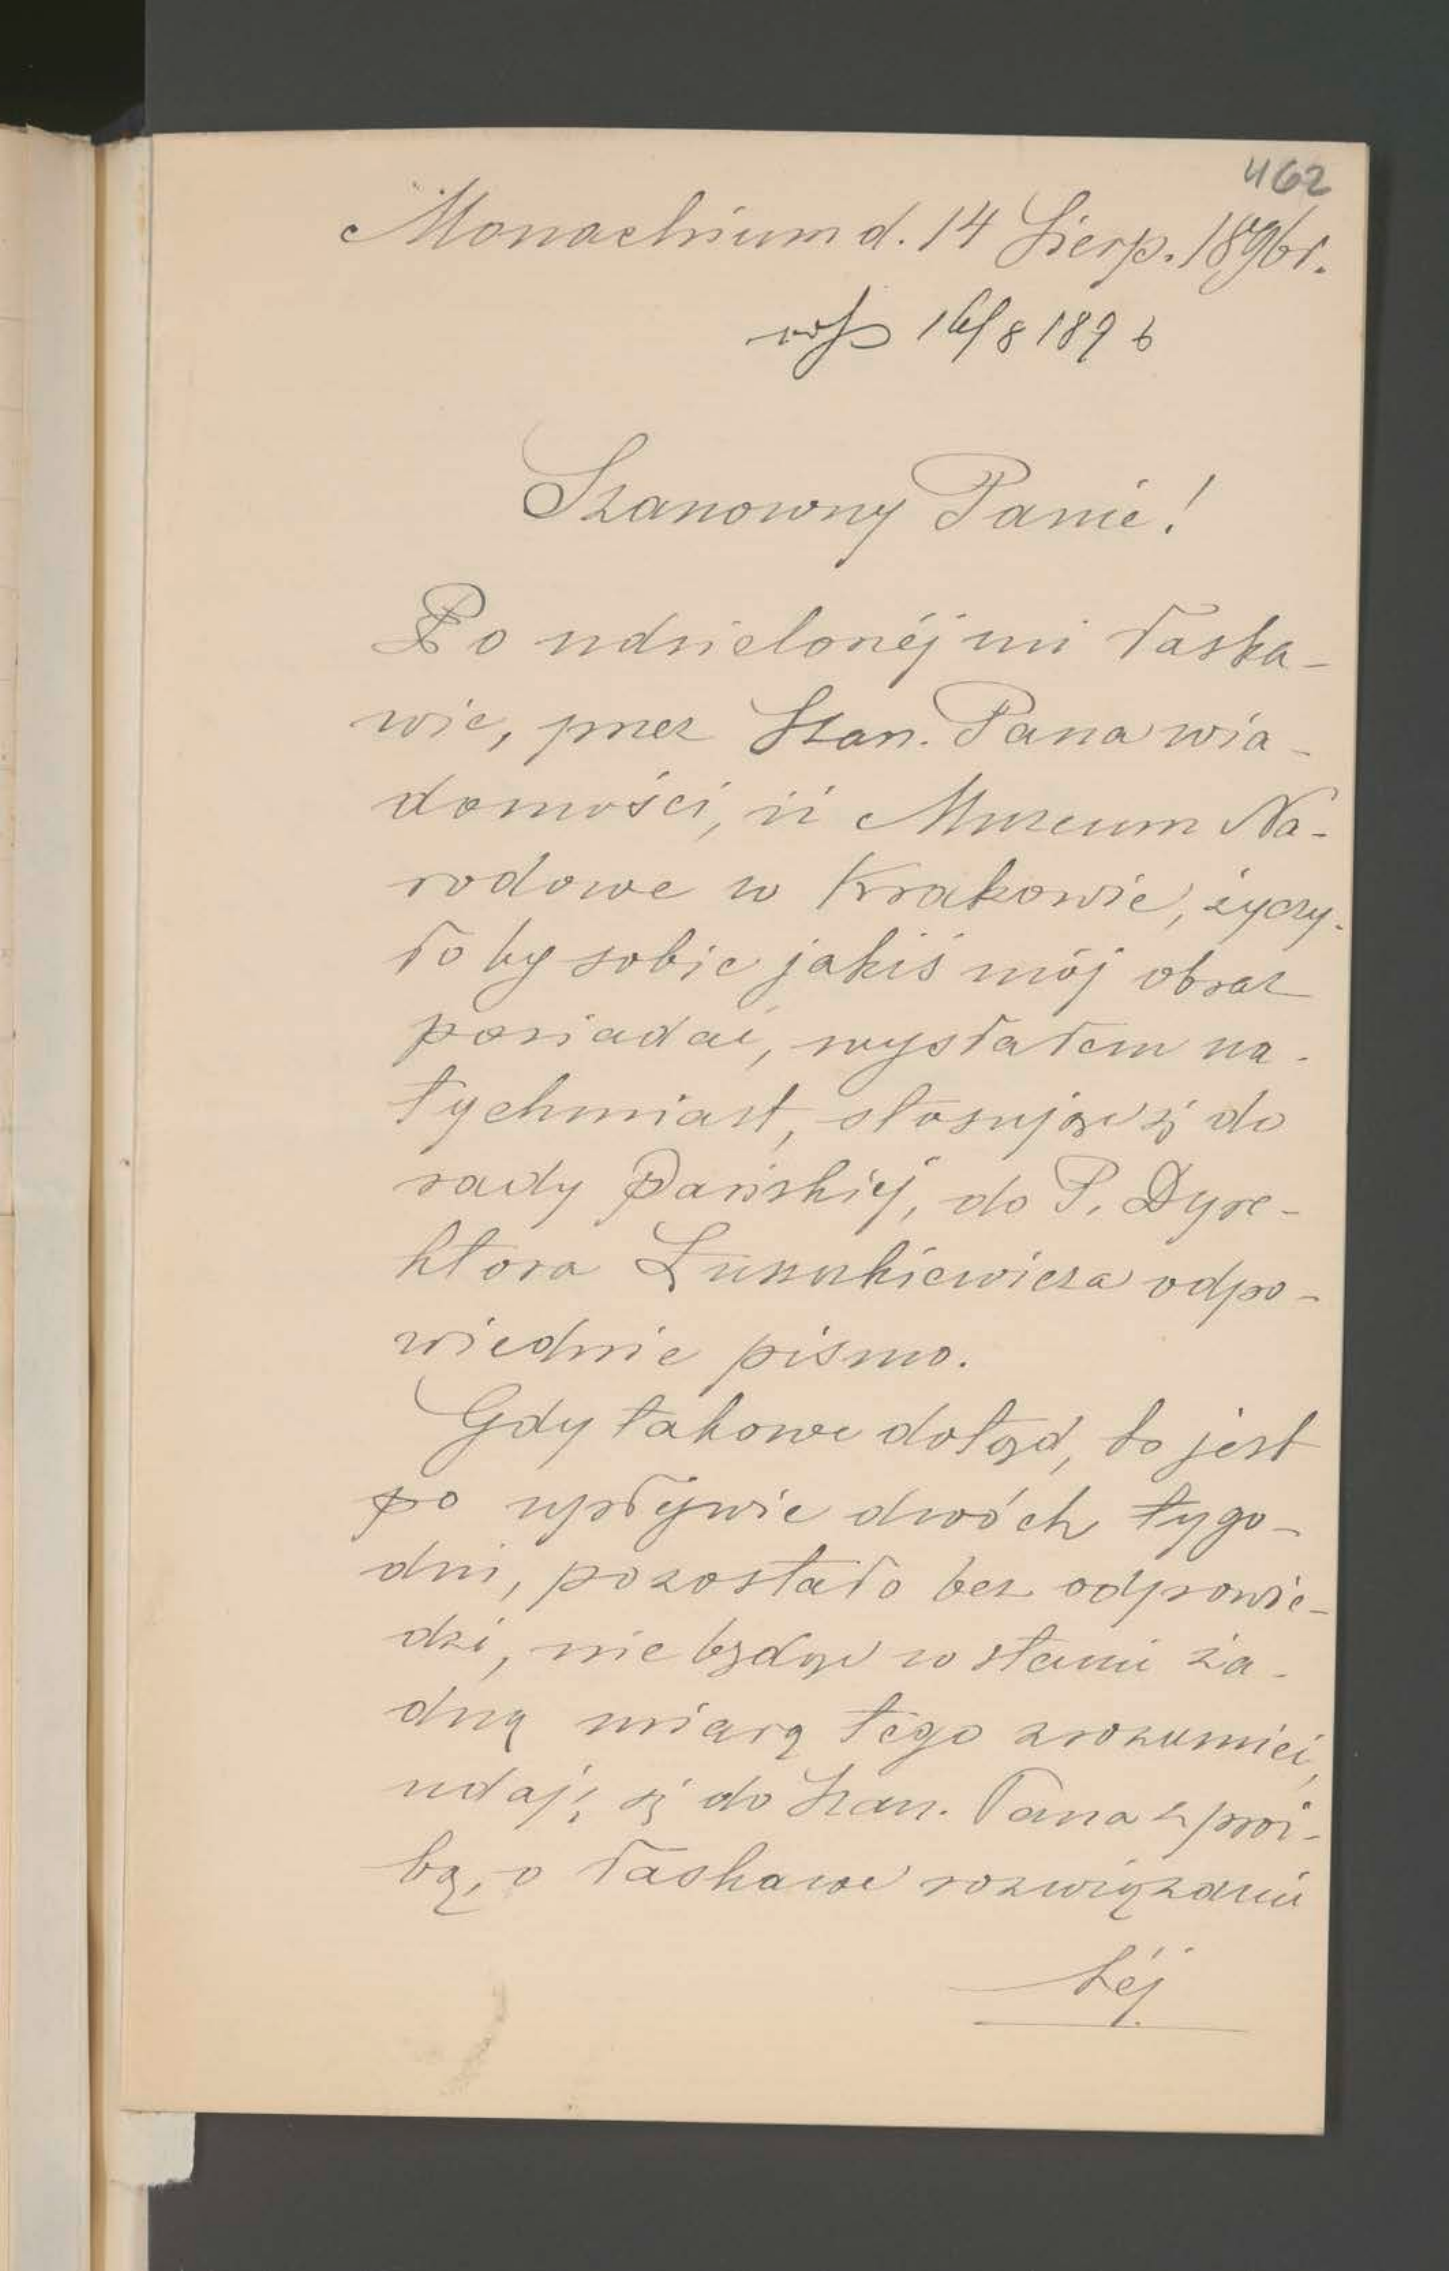 462
Monachium d. 14 Sierp. 1896 r.
odp 16/8 1896
Szanowny Panie!
Po udzielonéj mi łaska-
wie, przez Szan. Pana wia-
domości, iż Muzeum Na-
rodowe w Krakowie, życzy-
ło by sobie jakiś mój obraz
posiadać, wysłałem na-
tychmiast, stosując się do
rady Pańskiéj, do P. Dyre-
ktora Łuszczkiewicza odpo-
wiednie pismo.
Gdy takowe dotąd, to jest
po upływie dwóch tygo-
dni, pozostało bez odpowie-
dzi, nie będąc w stanie ża-
dną miarą tego zrozumieć,
udaję się do Szan. Pana z proś-
bą, o łaskawe rozwiązanie
téj